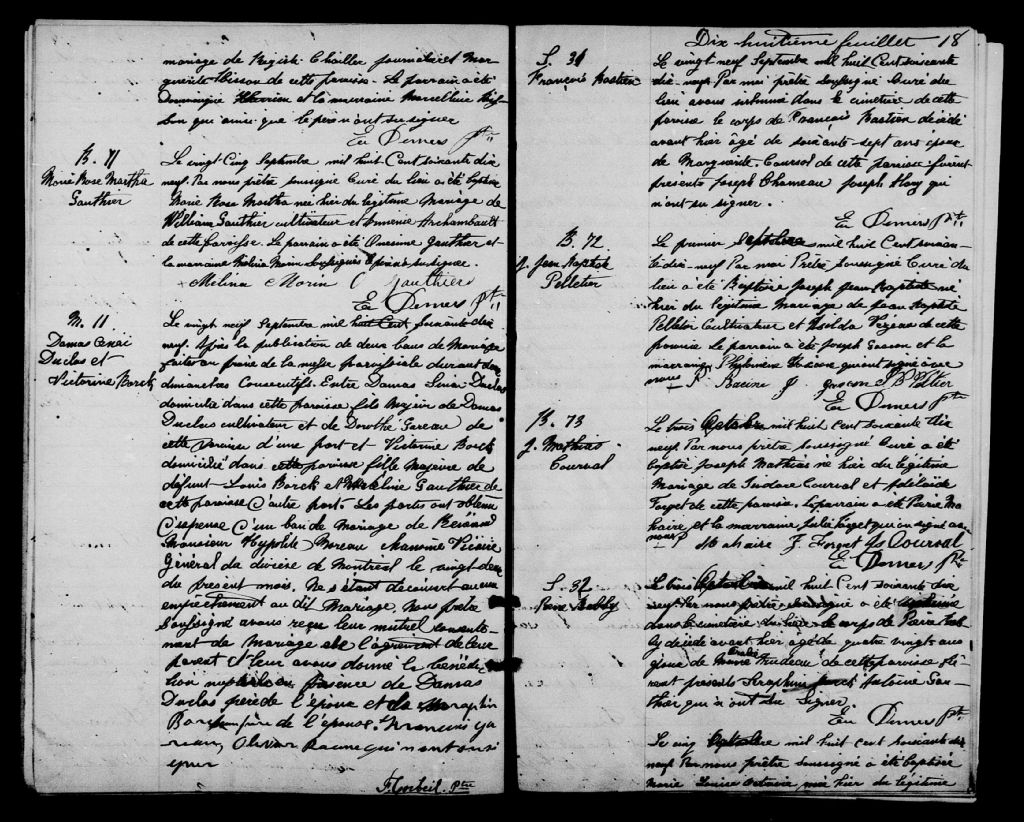 mariage de Régist Chailler journalier et Mar-
guerite Hisson de cette paroisse. Le parrain a été
Dominique et la marraine Marcelline His-
son qui ainsi que le père n'ont su signer
Ed Demers Ptre
B. 71
Marie Rose Martha
Gauthier
Le vingt Cinq Septembre mil huit Cent soixante dix
neuf. Par nous prêtre soussigné Curé du lieu a été baptisée
Marie Rose Martha née hier du légitime Mariage de
William Gauthier cultivateur et Armenie Archambault
de cette paroisse. Le parrain a été Onesime Gauthier et
la marraine Melina Morin soussignés le père su signer.
Melina Morin Gauthier
Ed Demers Ptre
M. 11
Damas
Duclos et
Victorine Borck
Le vingt neuf Septembre mil huit Cent soixante dix
neuf. Après la publication de deux bans de Mariage
faites au prône de la messe paroissiale durant deux
dimanches Consecutifs. Entre Damas Duclos
domicilié dans cette paroisse fils Majeur de Damas
Duclos cultivateur et de Dorothé Gareau de
cette paroisse d'une part et Victorine Borck
domiciliée dans cette paroisse fille Majeure de
défunt Louis Borck et Gauthier de
cette paroisse d'autre part. Les parties ont obtenu
dispense d'un ban de Mariage de Révérend
Monsieur Hypolite Moreau Chanoine Vicaire
Général du diocèse de Montréal le vingt deux
du present mois. Ne s'étant découvert aucun
empêchement au dit Mariage. Nous prêtre
soussigné avons reçu leur mutuel consente-
ment de Mariage de l'agrément de leur
parent & leur avons donné la bénédic-
tion nuptiale en présence de Damas
Duclos père de l'époux et de Seraphin
Borck frère de l'épouse. François Ga
reau, Olivier Racine qui n'ont su si
gner
F. Corbeil. Ptre
Dix huitième feuillet 18
S. 31
François Bastien
Le vingt neuf Septembre mil huit Cent soixante
dix-neuf Par moi prêtre soussigné Curé du
lieu avons inhumé dans le cimetière de cette
paroisse le corps de François Bastien décédé
avant hier âgé de soixante-sept ans époux
de Marguerite Coursol de cette paroisse furent
présents Joseph Chameau Joseph Hoxy qui
n'ont su signer.
Ed Demers Ptre
B. 72
J. Jean Baptiste
Pelletier
Le premier Septembre mil huit Cent soixan-
te dix-neuf Par moi Prêtre soussigné Curé du
lieu a été Baptisé Joseph Jean Baptiste né
hier du légitime Mariage de Jean Baptiste
Pelletier Cultivateur et Isolda Vézeau de cette
paroisse Le parrain a été Joseph Gascon et la
marraine Phylomène Racine qui ont signé avec
nous P. Racine J. Gascon J B Pelltier
Ed Demers Ptre
B. 73
J. Mathias
Coursol
Le trois Octobre mil huit Cent soixante dix
neuf. Par nous prêtre soussigné Curé a été
baptisé Joseph Mathias né hier du légitime
Mariage de Isidore Coursol et Adélaïde
Forget de cette paroisse. Le parrain a été Pierre Ma
haire et la marraine Julie Forget qui ont signé avec
nous P. Mahaire J. Forget Is Coursol
Ed Demers Ptre
S. 32
Pierre Babby
Le trois Octobre mil huit Cent soixante dix
neuf Par nous prêtre soussigné a été
dans le cimetière le corps de Pierre Bab
by décédé avant hier âgé de quatre vingts ans
époux de Marie Trudeau de cette paroisse fu-
rent présents Seraphin Borck Antoine Gau-
thier qui n'ont su Signer.
Ed Demers Ptre
Le cinq Octobre mil huit Cent soixante dix
neuf Par nous prêtre soussigné a été baptisée
Marie Louise Octavie née hier du légitime